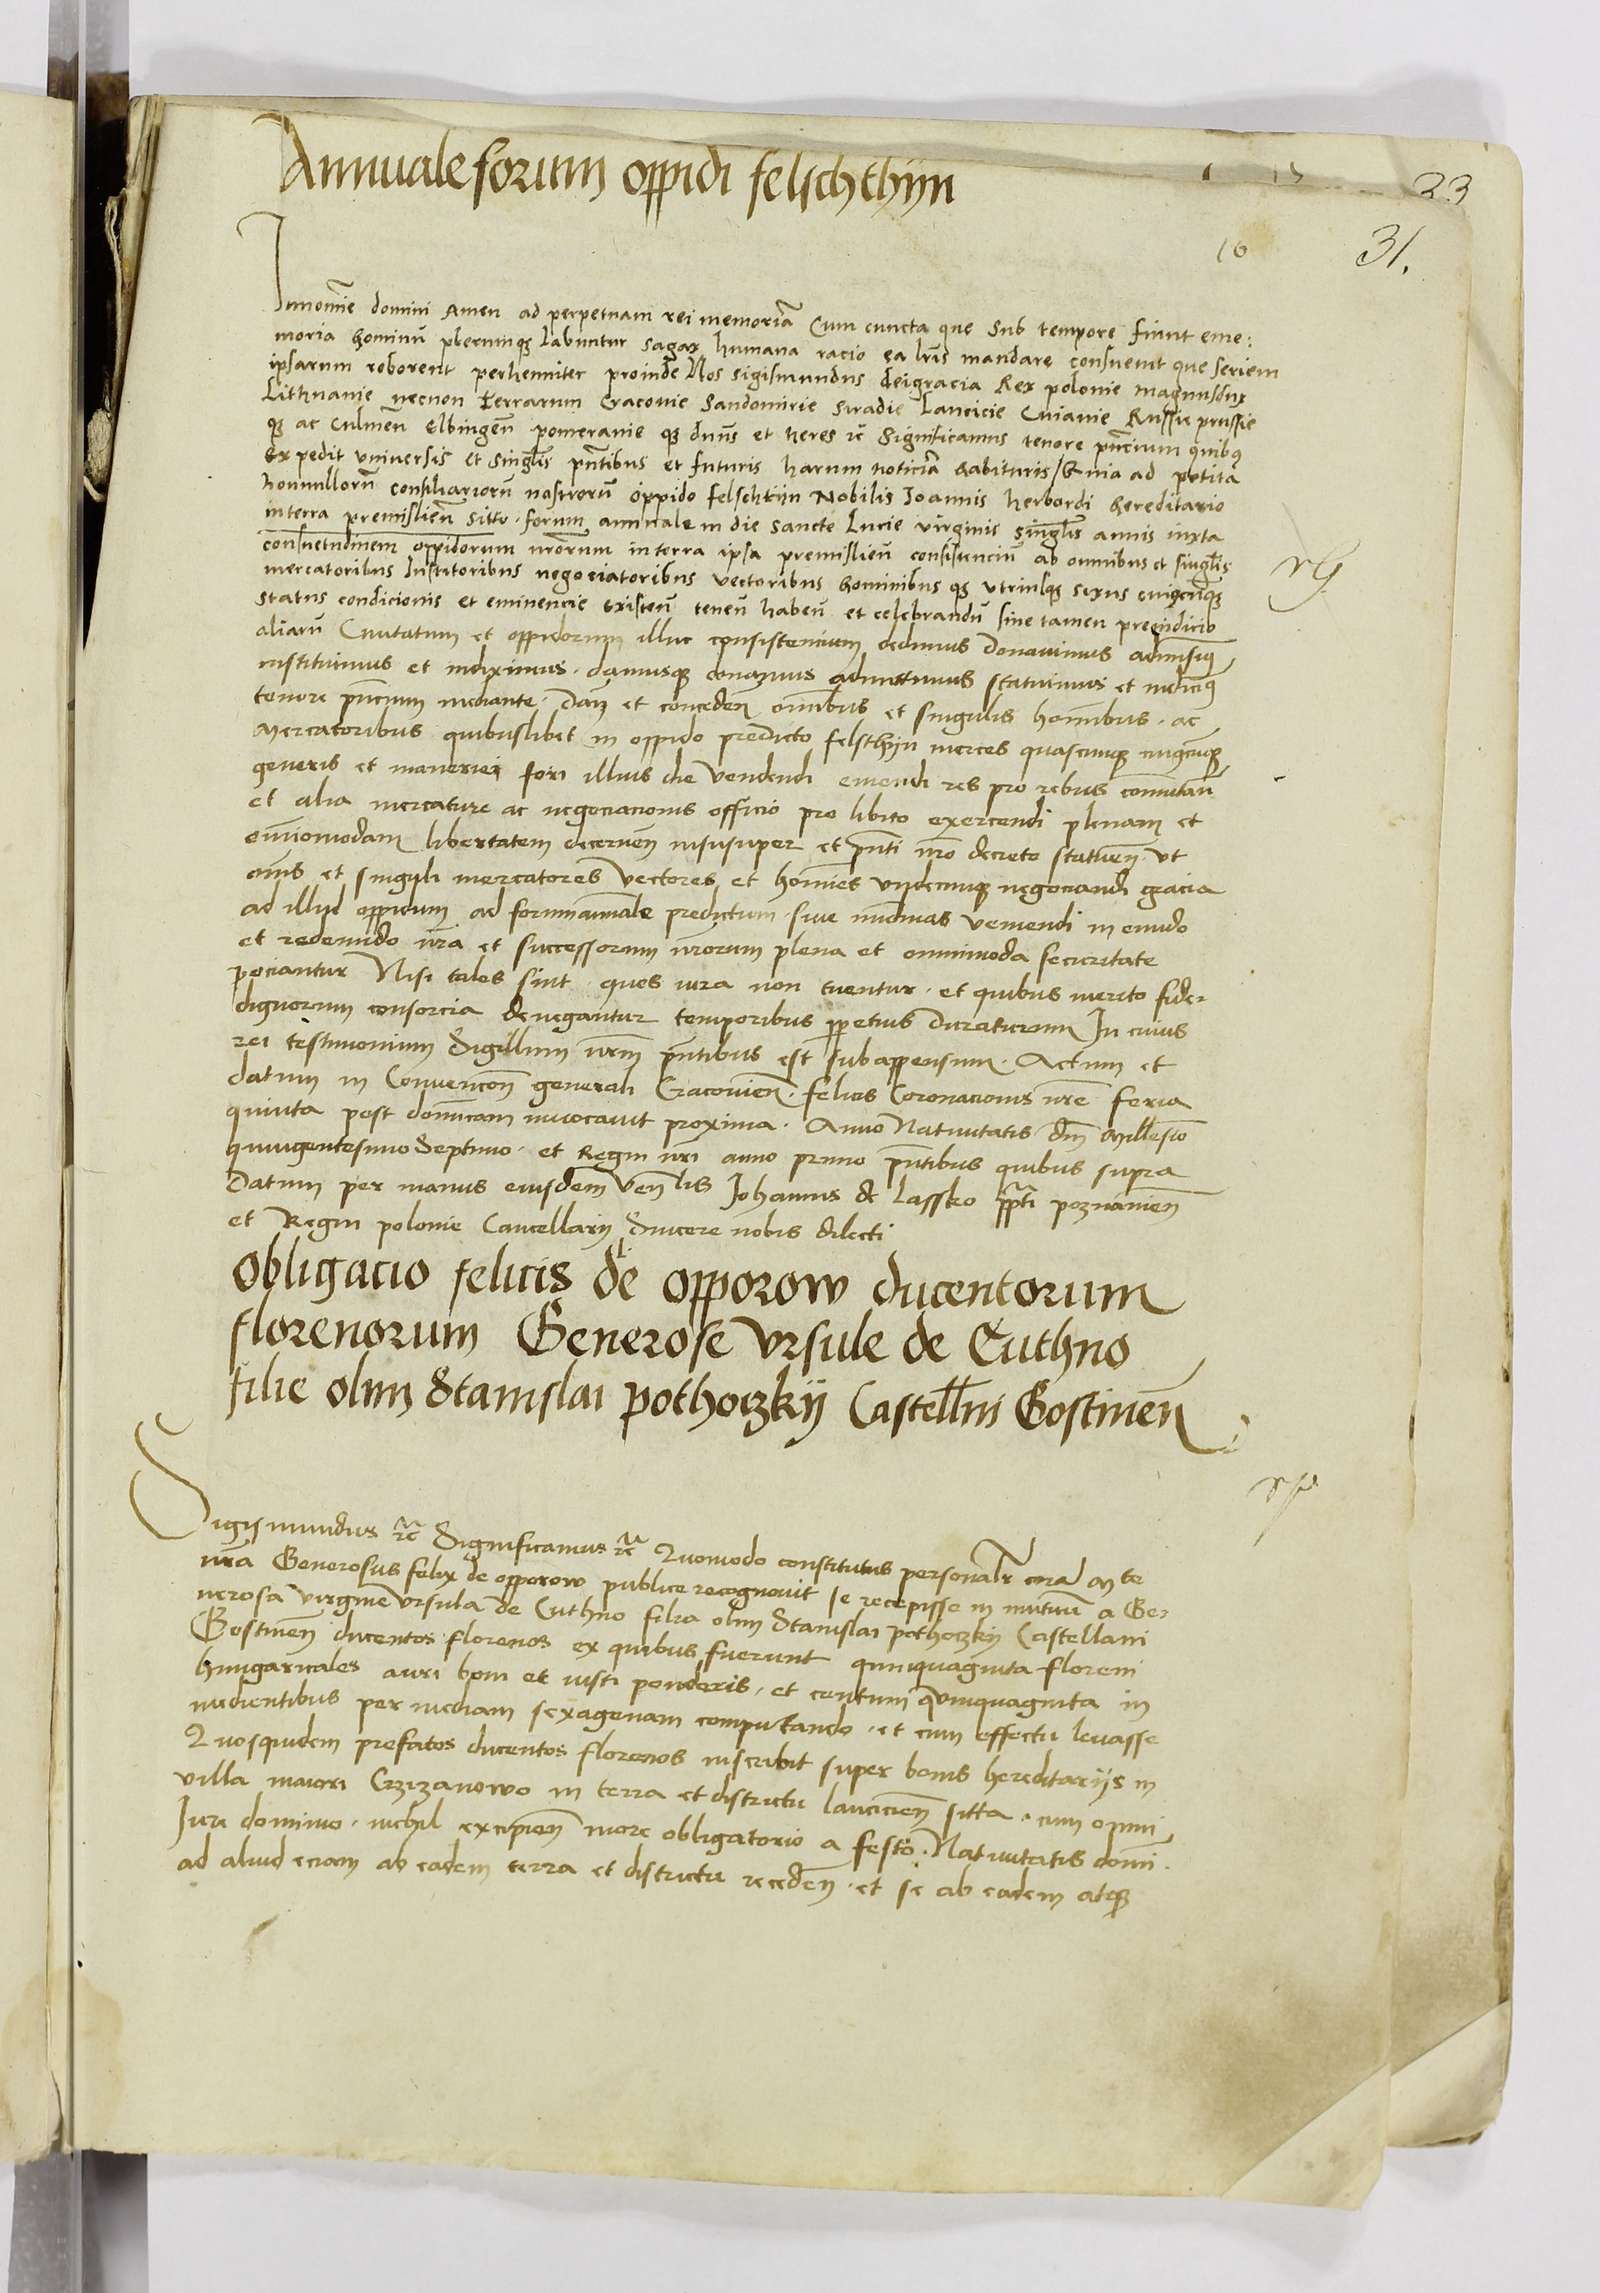 Annuale forum oppidi felschthijn
33
16
31.
Innomīe domini Amen ad perpetuam rei memoriā Cum cuncta que sub tempore fiunt eme:
moria hominū plerumqꝫ labuntur sagax humana racio ea lr̄is mandare consuevit que seriem
ipsarum roborent perhenniter proinde Nos Sigismundus deigracia Rex polonie magnusdux
Lithuanie necnon terrarum Cracovie Sandomirie Siradie Lancicie Cuiavie Russie prussie
qꝫ ac Culmeñ Elbingeñ pomeranie qꝫ dn̄us et heres rc̄ Significamus tenore pn̄cium quibꝫ
expedit universis et singl̄is pn̄tibus et futuris harum noticiā habituris / Quia ad petita
nonnullorū consiliariorū nostrorū oppido felschtijn Nobilis Joannis herbordi hereditario
interra premislieñ sitto. forum annuale in die sancte Lucie virginis singl̄is annis iuxta
consuetudinem oppidorum nr̄orum interra ipsa premislieñ consistenciū ab omnibus et singl̄is
mercatoribus Institoribus negociatoribus vectoribus hominibus qꝫ utriusqꝫ sexus cuiqcunqꝫ
status condicionis et eminencie existeñ teneñ habeñ et celebrandū sine tamen preiudicio
aliarū Civitatum et oppidorum illuc consistencium dedimus donavimus admisimꝫ
instituimus et indiximus. damusqꝫ donamus admittimus statuimus et indicimꝫ
tenore pn̄cium mediante. Dañ et concedeñ omnibus et singulis hominibus. ac
Mercatoribus quibuslibet in oppido predicto felsthijn merces quascunqꝫ cuiqcunqꝫ
generis et maneriei fori illius die vendendi emendi res pro rebus commutañ
et alia mercature ac negociacionis officio pro libito exercendi plenam et
omnimodam libertatem decerneñ insuper et pn̄ti nr̄o decreto statueñ ut
om̄s et singuli mercatores vectores et homines undecunqꝫ negociandi gracia
ad illud oppidum ad forumannuale predictum. sive nundinas veniendi in eundo
et redeundo nr̄a et successorum nr̄orum plena et omnimoda securitate
pociantur Nisi tales sint quos iura non tuentur. et quibus merito fide-
dignorum consorcia denegantur temporibus perpetuis duraturum In cuius
rei testimonium Sigillum nr̄m pn̄tibus est subappensum. Actum et
datum in Convencōne generali Cracovieñ. felicis Coronacionis nr̄e feria
quinta post dominicam invocavit proxima. Anno Nativitatis dn̄i Millesīo
quingentesimo Septimo. et Regni nr̄i anno primo pn̄tibus quibus supra
Datum per manus eiusdem Ven̄lis Johannis de Lassko ppti poznanieñ
et Regni polonie Cancellarij Sincere nobis dilecti
Obligacio felicis de Opporow ducentorum
florenorum Generose Ursule de Cuthno
filie olim Stanislai pothoczkij Castellni Gostineñ
Sigismundus rc̄ Significamus rc̄ Quomodo constitutus personalr̄ cora m te
nr̄a Generosus felix de opporow publice recognovit se recepisse in mutuū a Ge-
nerosa virgine Ursula de Cuthno filia olim Stanislai pothoczkij Castellani
Gostineñ ducentos florenos ex quibus fuerunt quinquaginta floreni
hungaricales auri boni et iusti ponderis. et centum quinquaginta in
medientibus per mediam sexagenam computando. et cum effectu levasse
Quosquidem prefatos ducentos florenos inscribit super bonis hereditarijs in
villa maiori Crzizanowo in terra et districtu lancicieñ sitta. cum omni
Iure dominio. nichil excipieñ more obligatorio a festo. Nativitatis domī.
ad aliud eciam ab eadem terra et districtu recedeñ. et se ab eadem atqꝫ